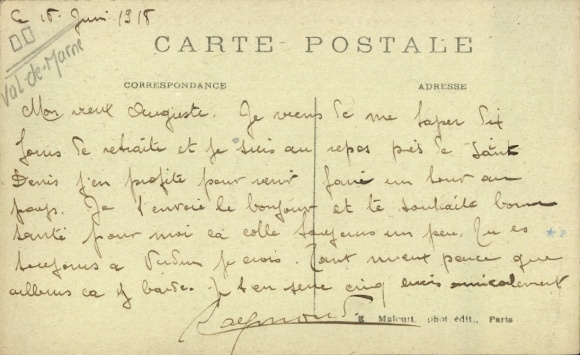 Le 18 Juin 1918
Val-de-Marne
CARTE POSTALE
CORRESPONDANCE ADRESSE
Mon vieux Auguste. Je viens de me taper dix
jours de retraite et je suis au repos près de Saint
Denis j'en profite pour venir faire un tour au
pays. Je t'envoie le bonjour et te souhaite bonne
santé pour moi ca colle toujours un peu. Tu es
toujours a Verdun je crois. Tant mieux parce que
ailleurs ca y barde. Je t'en serre cinq amicalement
Raymond
Malcuit, phot édit., Paris